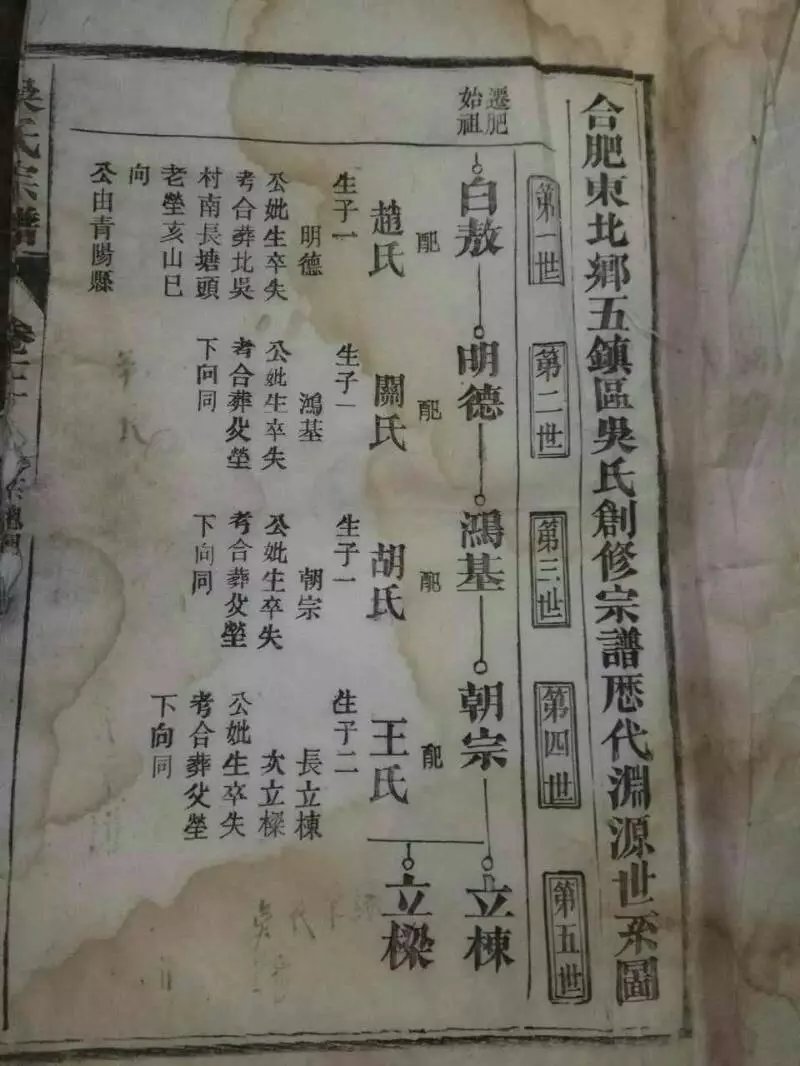 合肥東北鄉五鎮區吳氏創修宗譜歷代淵源世系圖
第一世
第二世
第三世
第四世
第五世
遷肥
始祖
白敖
配
趙氏
生子一
明德
公妣生卒失
考合葬北吳
村南長塘頭
老塋亥山巳
向
公由青陽縣
明德
配
關氏
生子一
鴻基
公妣生卒失
考合葬父塋
下向同
鴻基
配
胡氏
生子一
朝宗
公妣生卒失
考合葬父塋
下向同
朝宗
配
王氏
生子二
長立棟
次立樑
公妣生卒失
考合葬父塋
下向同
立棟
立樑
吳氏宗譜